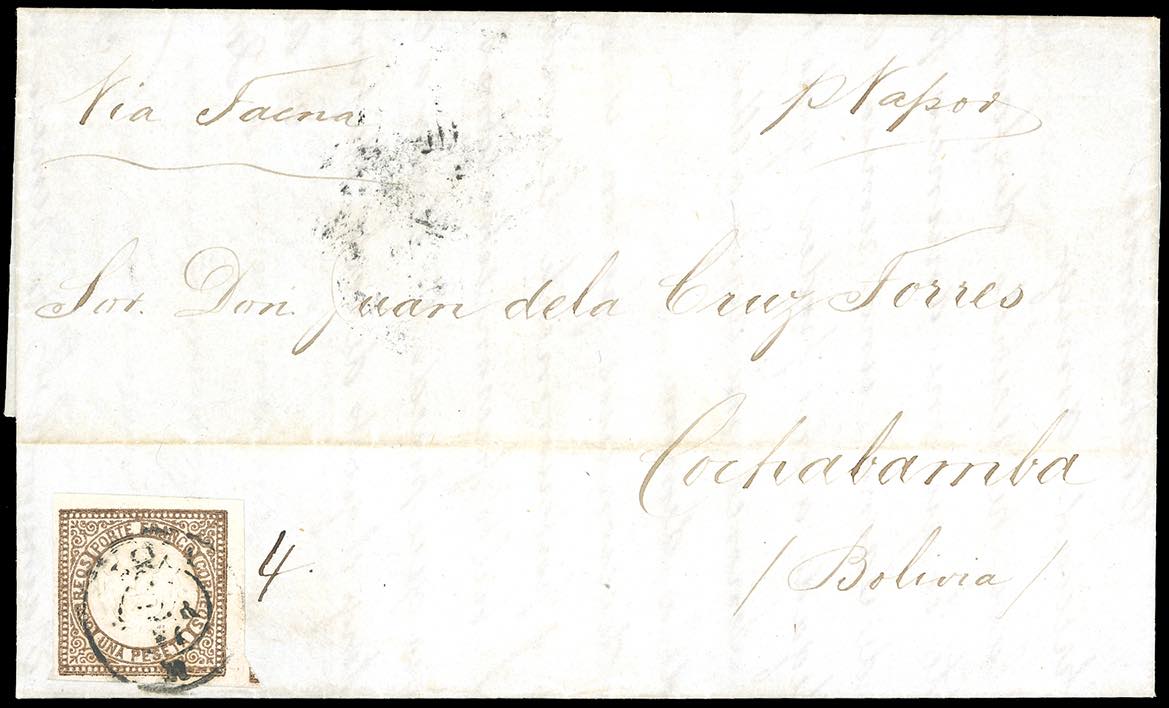 Via Tacna
p Vapor
Sor. Don. Juan dela Cruz Torres
Cochabamba
/ Bolivia /
4.
PORTE FRANCO
CORREOS
UNA PESETA